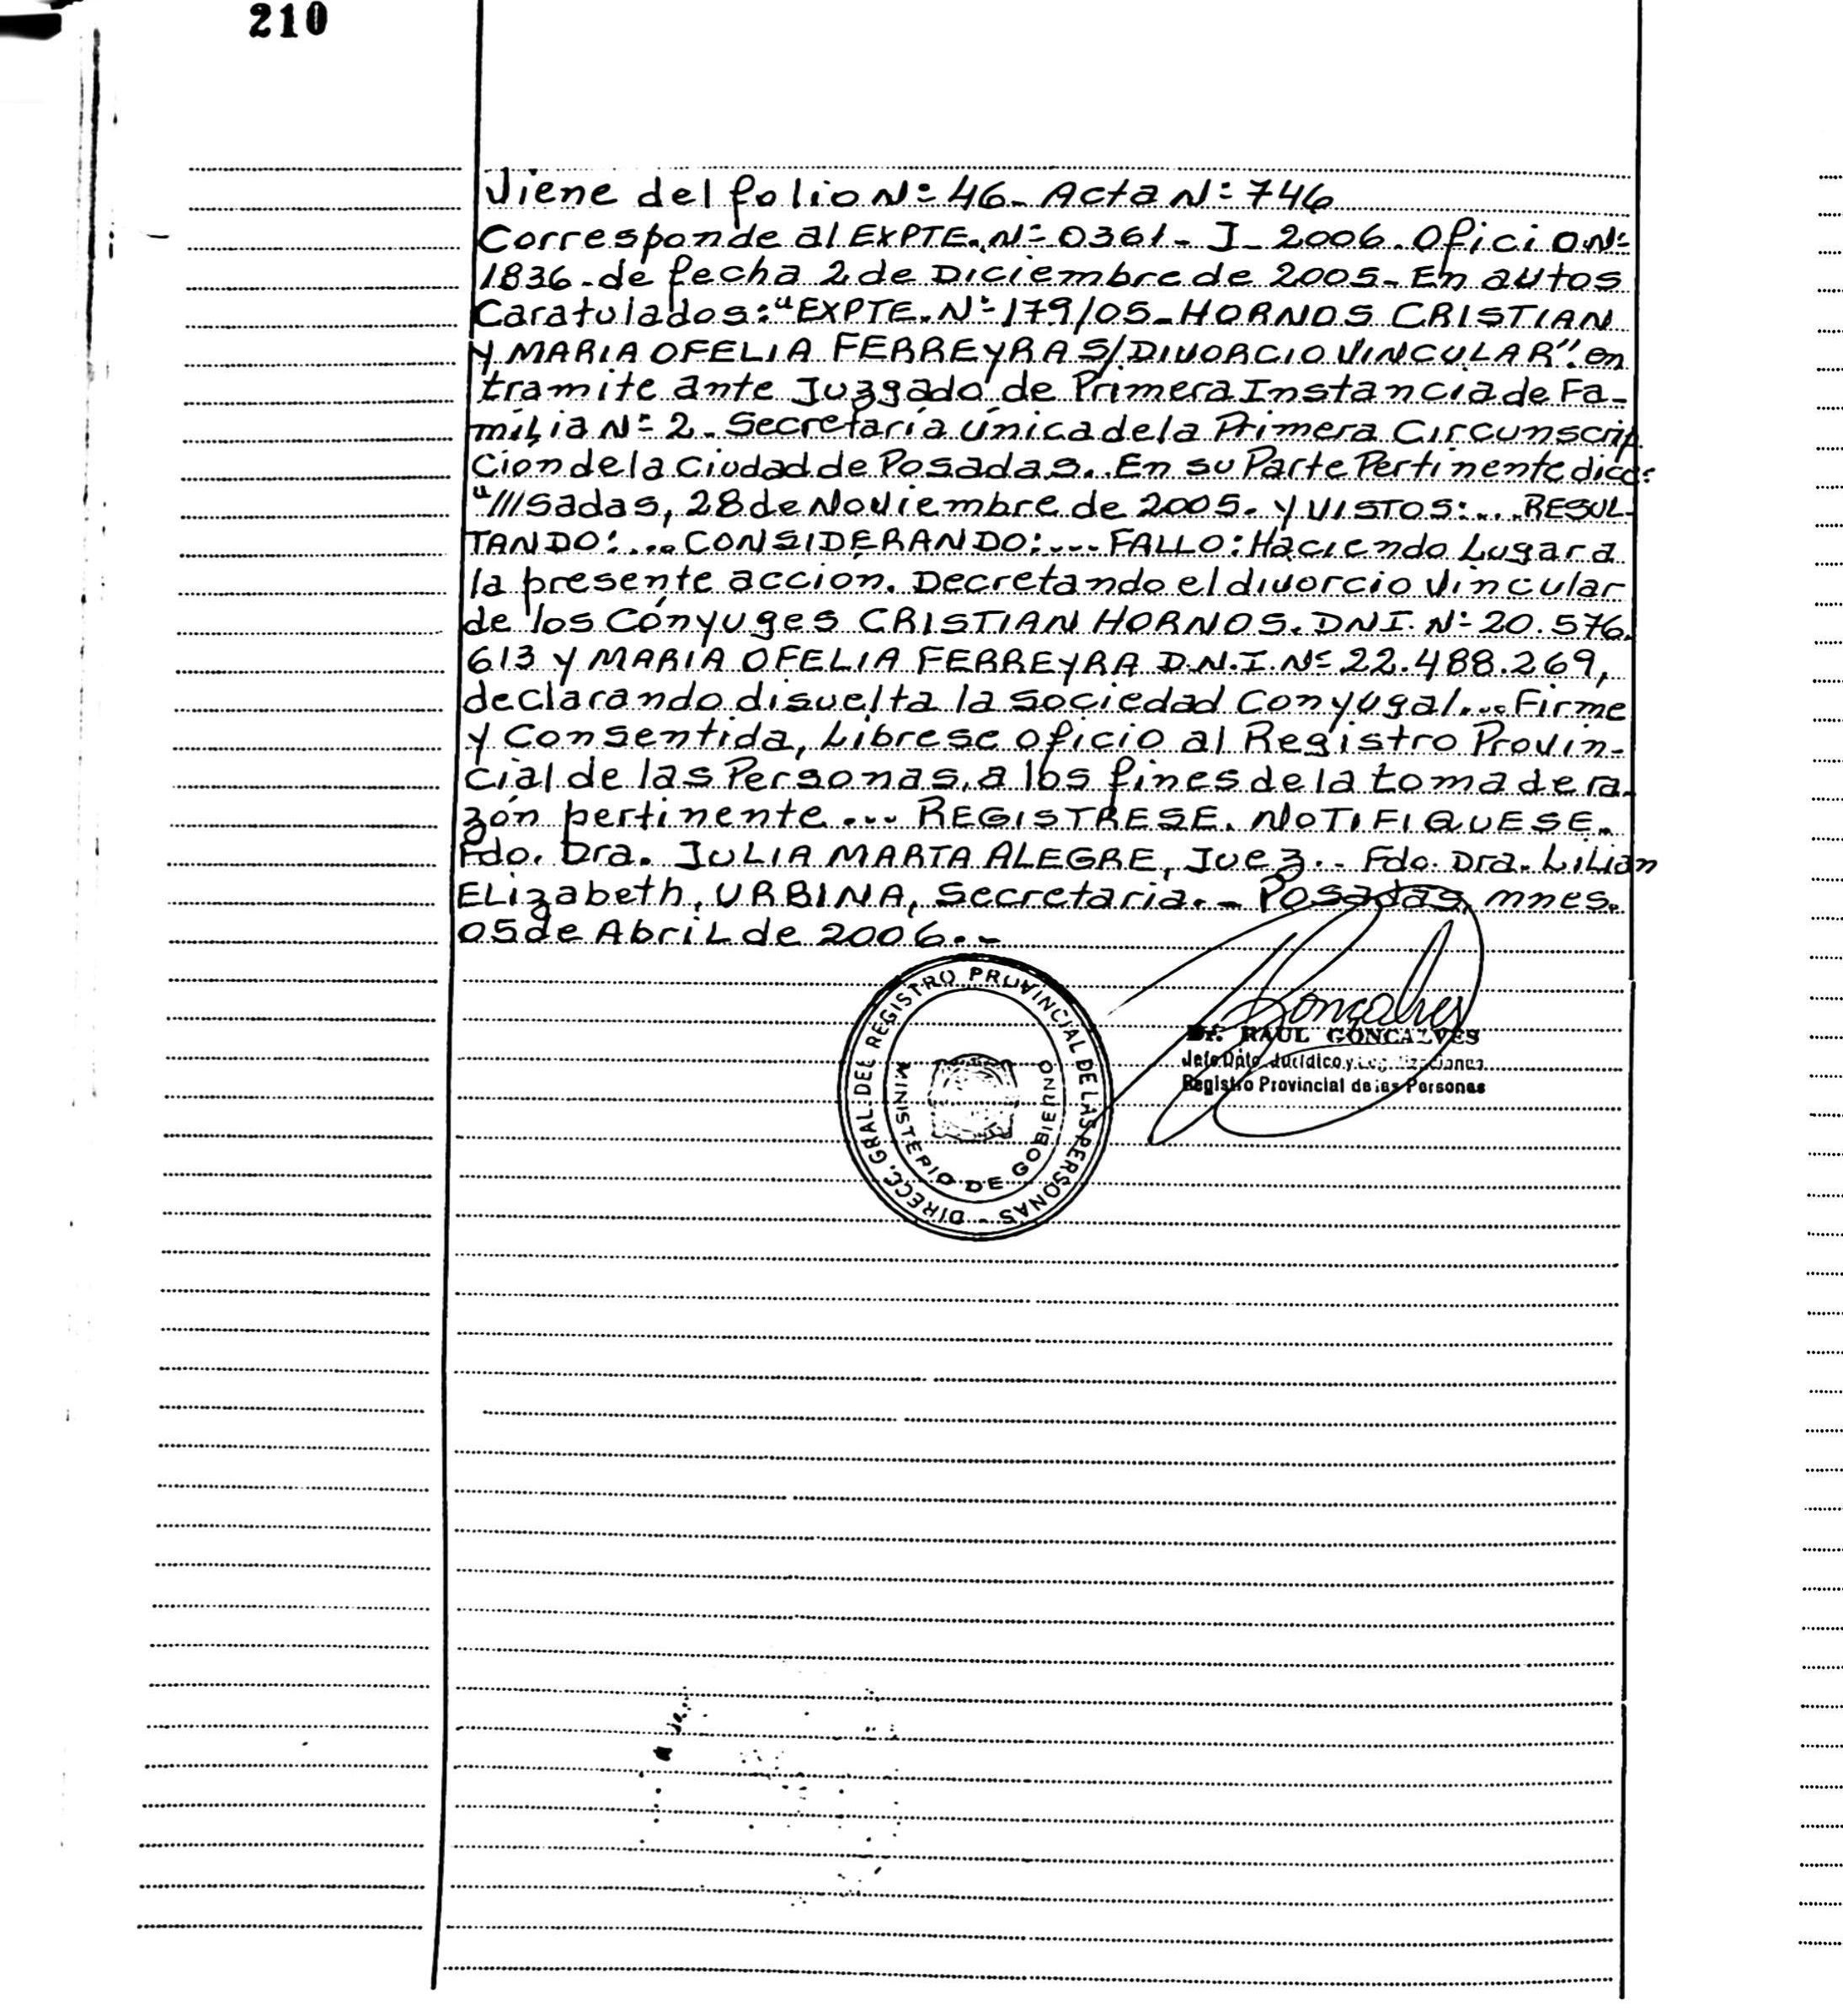 210
Viene del folio Nº 46_ Acta Nº 746
Corresponde al EXPTE. Nº 0361_ J_ 2006. Oficio Nº
1836_ de fecha 2 de Diciembre de 2005_ En autos
Caratulados: "EXPTE. Nº 179/05_ HORNOS CRISTIAN
Y MARIA OFELIA FERREYRA S/DIVORCIO VINCULAR". en
tramite ante Juzgado de Primera Instancia de Fa-
milia Nº 2_ Secretaría única de la Primera Circunscrip-
ción de la Ciudad de Posadas.. En su Parte Pertinente dice:
"///sadas, 28 de Noviembre de 2005. y VISTOS:... RESUL-
TANDO:... CONSIDERANDO:.... FALLO: Haciendo Lugar a
la presente acción. Decretando el divorcio Vincular
de los Cónyuges CRISTIAN HORNOS. DNI. Nº 20.576.
613 Y MARIA OFELIA FERREYRA D.N.I. Nº 22.488.269,
declarando disuelta la Sociedad Conyugal... Firme
y Consentida, Librese oficio al Registro Provin-
cial de las Personas, a los fines de la toma de ra-
zón pertinente... REGISTRESE. NOTIFIQUESE.
Fdo. Dra. JULIA MARTA ALEGRE, Juez.- Fdo. Dra. LiLian
ELizabeth, URBINA, Secretaria.- Posadas, mnes.
05 de AbriL de 2006.-
DIRECC. GRAL. DEL REGISTRO PROVINCIAL DE LAS PERSONAS -
MINISTERIO DE GOBIERNO
Goncalves
Dr. RAUL GONCALVES
Jefe Dpto. Jurídico y Legalizaciones
Registro Provincial de las Personas